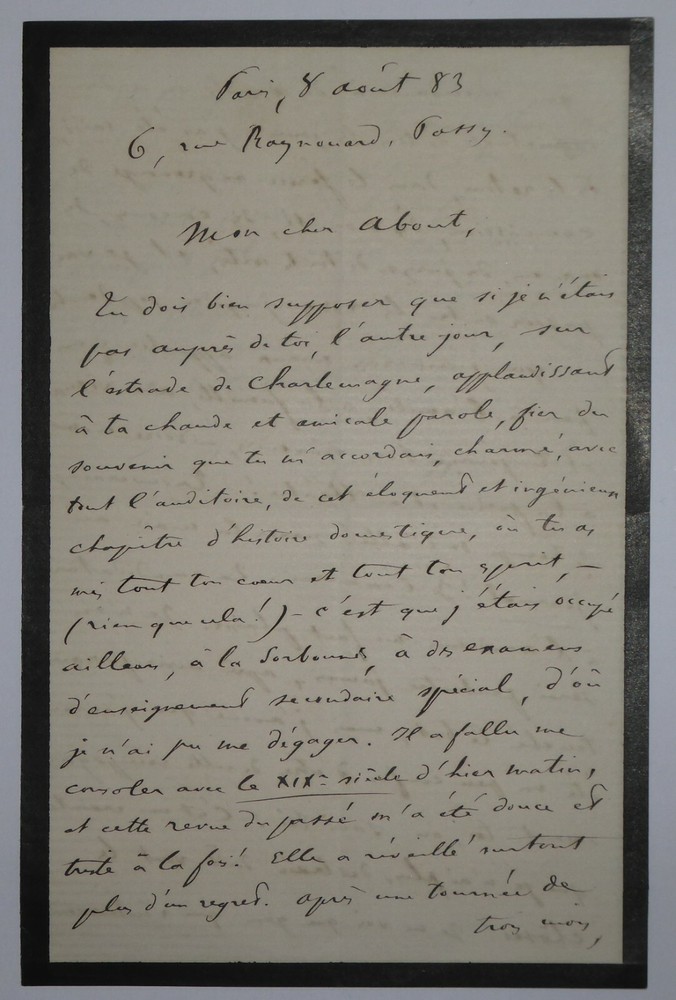 Paris, 8 août 83
6, rue Raynouard, Passy.
Mon cher About,
Tu dois bien supposer que si je n'étais
pas auprès de toi, l'autre jour, sur
l'estrade de Charlemagne, applaudissant
à ta chaude et amicale parole, fier du
souvenir que tu m'accordais, charmé, avec
tout l'auditoire, de cet éloquent et ingénieux
chapître d'histoire domestique, où tu as
mis tout ton coeur et tout ton esprit, —
(rien que cela!) — c'est que j'étais occupé
ailleurs, à la Sorbonne, à des examens
d'enseignement secondaire spécial, d'où
je n'ai pu me dégager. Il a fallu me
consoler avec le XIXe siècle d'hier matin,
et cette revue du passé m'a été douce et
triste à la fois! Elle a réveillé surtout
plus d'un regret. Après une tournée de
trois mois,